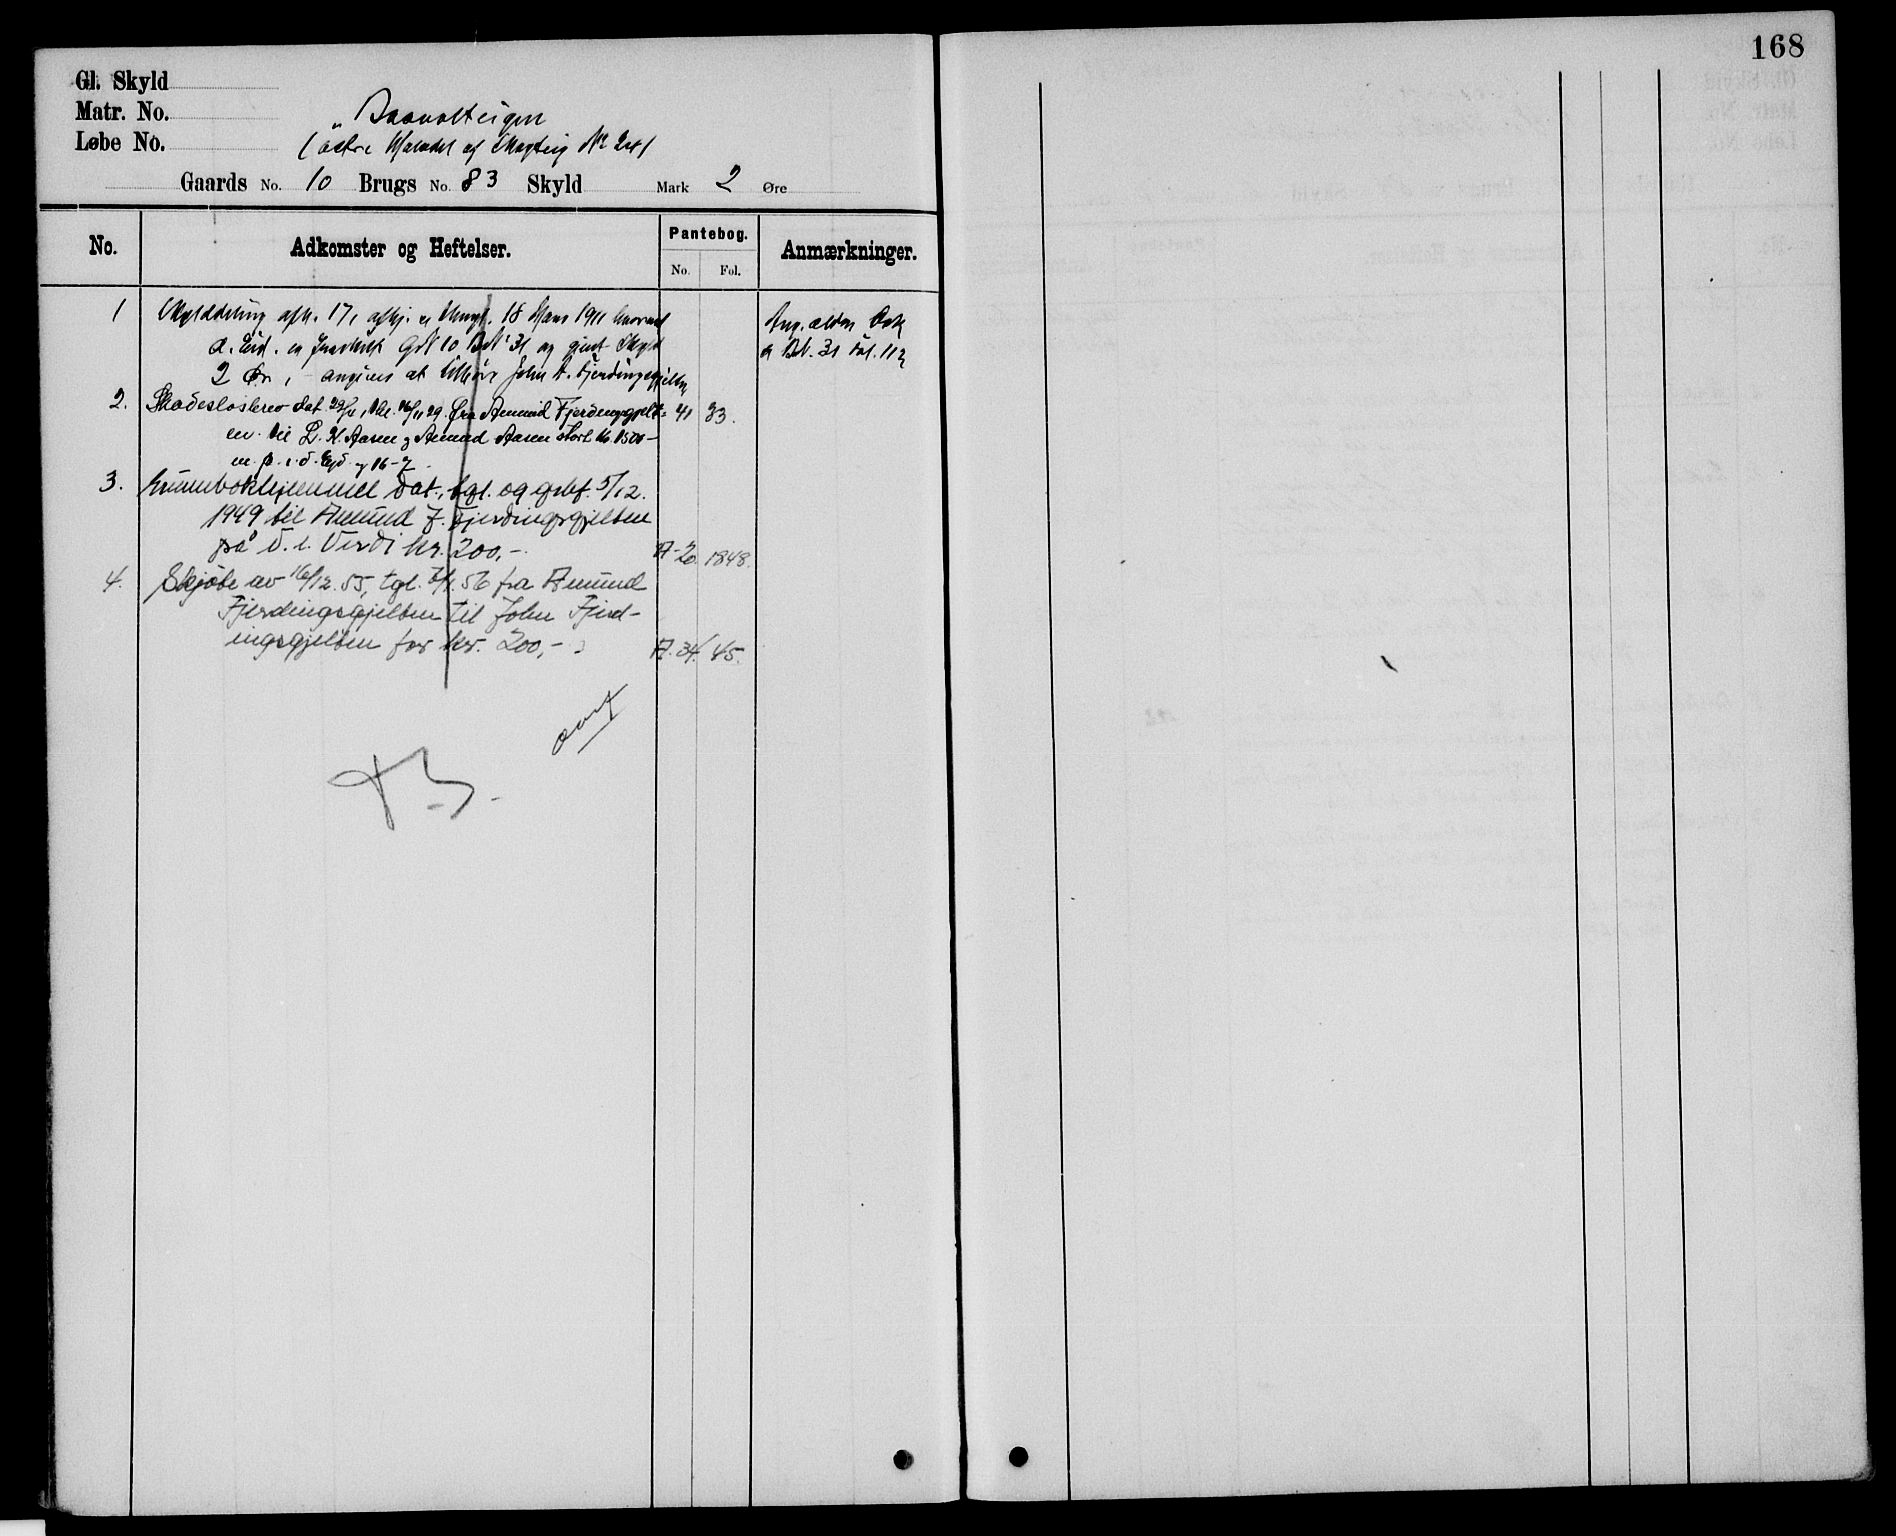 168
Gl. Skyld
Matr. No.
Løbe No.
(østre Halvdel af Skogteig No 24)
Gaards No. 10 Brugs No. 83 Skyld Mark 2 Øre
No. Adkomster og Heftelser. Pantebog. Anmærkninger.
No. Fol.
1 Skylddeling afh. 17, 18 Mars 1911 hvorved
d. Eid. er fraskilt GN 10 BN 31 og givet Skyld
2 Øre, angives at tilhøre John A. Fjerdingsgjelten
Ang. ældre
BN. 31 Fol. 112
2. Skadesløsbrev dat. 29/11, 29. fra Amund Fjerdingsgjelt- 41 33.
en til L. H. Aasen og Amund Aasen stort kr. 1500-
m. p. i. d. Egd. og 16-7
3. Grunnbokshjemmel dat., tgl. og gebf. 5/12.
1949 til Amund J. Fjerdingsgjelten
på d. e. Verdi kr. 200,-. A-20. 1848.
4. Skjøte av 16/12.55, tgl. 56 fra Amund
Fjerdingsgjelten til John Fjerd-
ingsgjelten for kr. 200,- A. 34. 45.
ovf